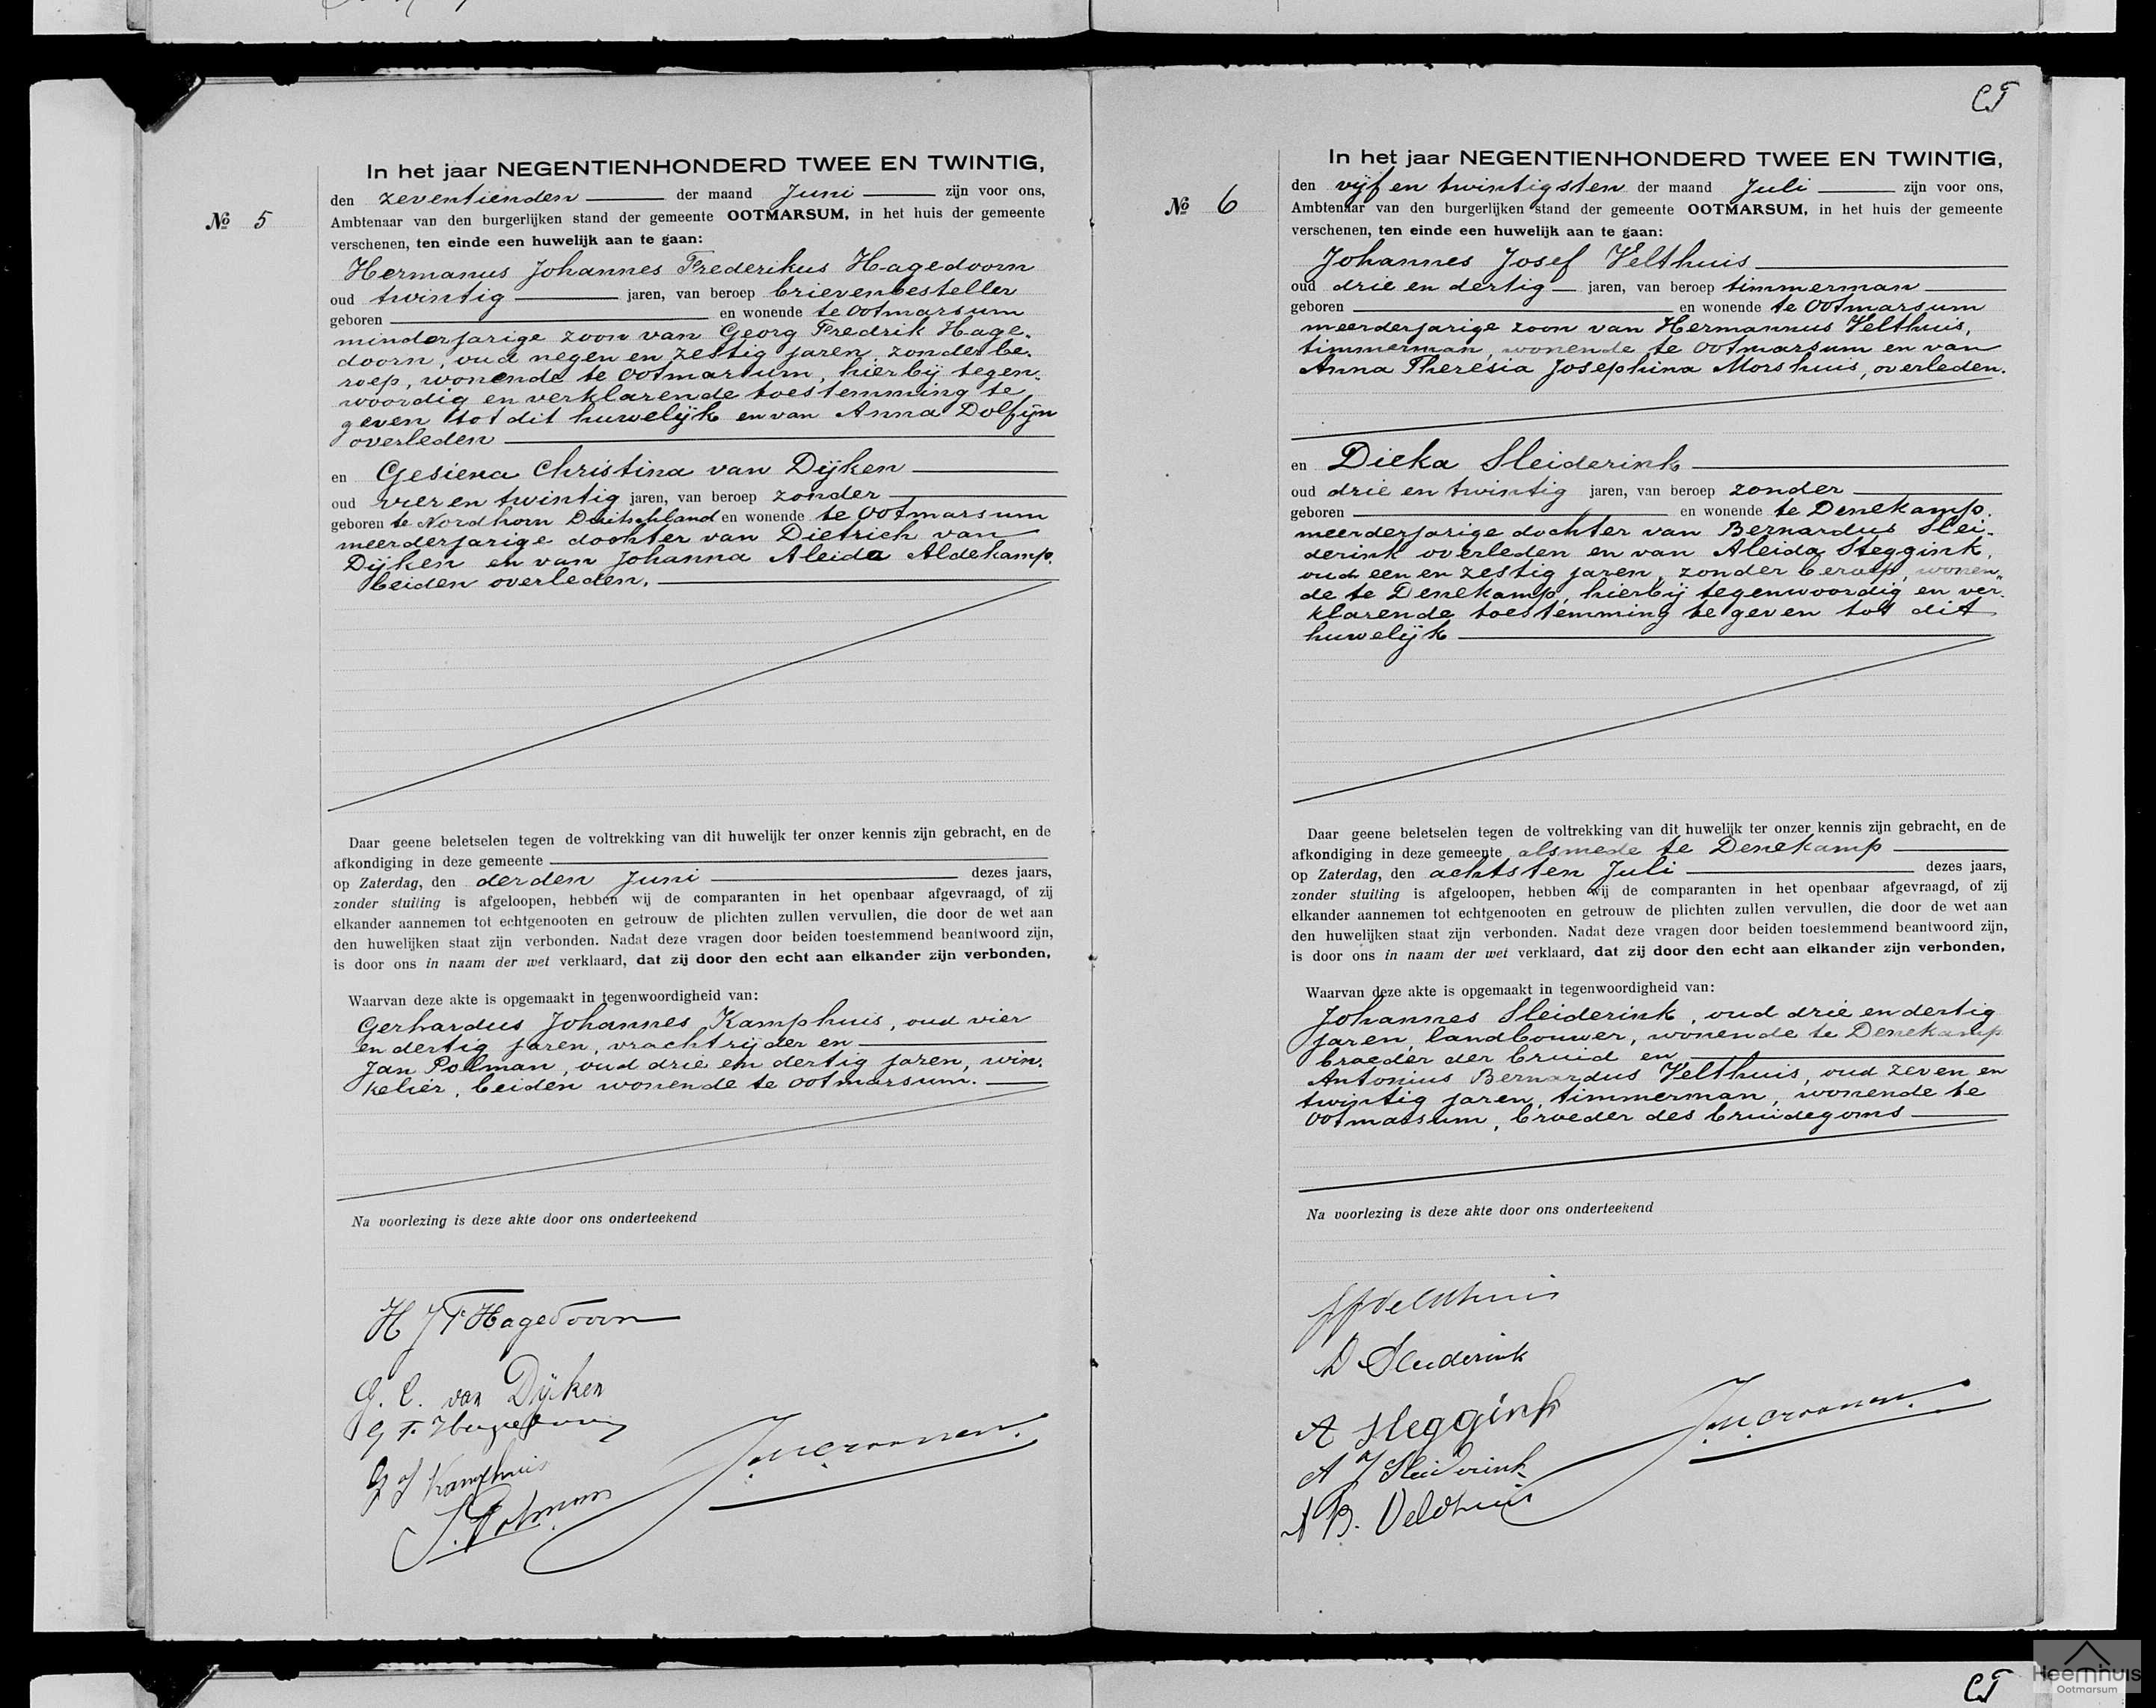 CT
In het jaar NEGENTIENHONDERD TWEE EN TWINTIG,
den zeventienden der maand Juni zijn voor ons,
Nº 5
Ambtenaar van den burgerlijken stand der gemeente OOTMARSUM, in het huis der gemeente
verschenen, ten einde een huwelijk aan te gaan:
Hermanus Johannes Frederikus Hagedoorn
oud twintig jaren, van beroep brievenbesteller
geboren en wonende te Ootmarsum
minderjarige zoon van Georg Fredrik Hage-
doorn, oud negen en zestig jaren, zonder be-
roep, wonende te Ootmarsum, hierbij tegen-
woordig en verklarende toestemming te
geven tot dit huwelijk en van Anna Dolfijn
overleden
en Gesiena Christina van Dijken
oud vier en twintig jaren, van beroep zonder
geboren te Nordhorn Duitschland en wonende te Ootmarsum
meerderjarige dochter van Dietrich van
Dijken en van Johanna Aleida Aldekamp.
beiden overleden.
Daar geene beletselen tegen de voltrekking van dit huwelijk ter onzer kennis zijn gebracht, en de
afkondiging in deze gemeente
op Zaterdag, den derden Juni dezes jaars,
zonder stuiting is afgeloopen, hebben wij de comparanten in het openbaar afgevraagd, of zij
elkander aannemen tot echtgenooten en getrouw de plichten zullen vervullen, die door de wet aan
den huwelijken staat zijn verbonden. Nadat deze vragen door beiden toestemmend beantwoord zijn,
is door ons in naam der wet verklaard, dat zij door den echt aan elkander zijn verbonden,
Waarvan deze akte is opgemaakt in tegenwoordigheid van:
Gerhardus Johannes Kamphuis, oud vier
en dertig jaren, vrachtrijder en
Jan Polman, oud drie en dertig jaren, win-
kelier, beiden wonende te Ootmarsum.
Na voorlezing is deze akte door ons onderteekend
H J F Hagedoorn
G. C. van Dijken
G F Hagedoorn
G J Kamphuis
J. Polman
In het jaar NEGENTIENHONDERD TWEE EN TWINTIG,
den vijf en twintigsten der maand Juli zijn voor ons,
Nº 6
Ambtenaar van den burgerlijken stand der gemeente OOTMARSUM, in het huis der gemeente
verschenen, ten einde een huwelijk aan te gaan:
Johannes Josef Velthuis
oud drie en dertig jaren, van beroep timmerman
geboren en wonende te Ootmarsum
meerderjarige zoon van Hermannus Velthuis,
timmerman, wonende te Ootmarsum en van
Anna Theresia Josephina Morshuis, overleden.
en Dieka Sleiderink
oud drie en twintig jaren, van beroep zonder
geboren en wonende te Denekamp.
meerderjarige dochter van Bernardus Slei-
derink overleden en van Aleida Steggink,
oud een en zestig jaren, zonder beroep, wonen-
de te Denekamp, hierbij tegenwoordig en ver-
klarende toestemming te geven tot dit
huwelijk
Daar geene beletselen tegen de voltrekking van dit huwelijk ter onzer kennis zijn gebracht, en de
afkondiging in deze gemeente alsmede te Denekamp
op Zaterdag, den achtsten Juli dezes jaars,
zonder stuiting is afgeloopen, hebben wij de comparanten in het openbaar afgevraagd, of zij
elkander aannemen tot echtgenooten en getrouw de plichten zullen vervullen, die door de wet aan
den huwelijken staat zijn verbonden. Nadat deze vragen door beiden toestemmend beantwoord zijn,
is door ons in naam der wet verklaard, dat zij door den echt aan elkander zijn verbonden,
Waarvan deze akte is opgemaakt in tegenwoordigheid van:
Johannes Sleiderink, oud drie en dertig
jaren, landbouwer, wonende te Denekamp
broeder der bruid en
Antonius Bernardus Velthuis, oud zeven en
twintig jaren, timmerman, wonende te
Ootmarsum, broeder des bruidegoms
Na voorlezing is deze akte door ons onderteekend
JJ Veldthuis
D Sleiderink
A Steggink
A J Sleiderink
A B. Veldhuis
CT
Heemhuis
Ootmarsum